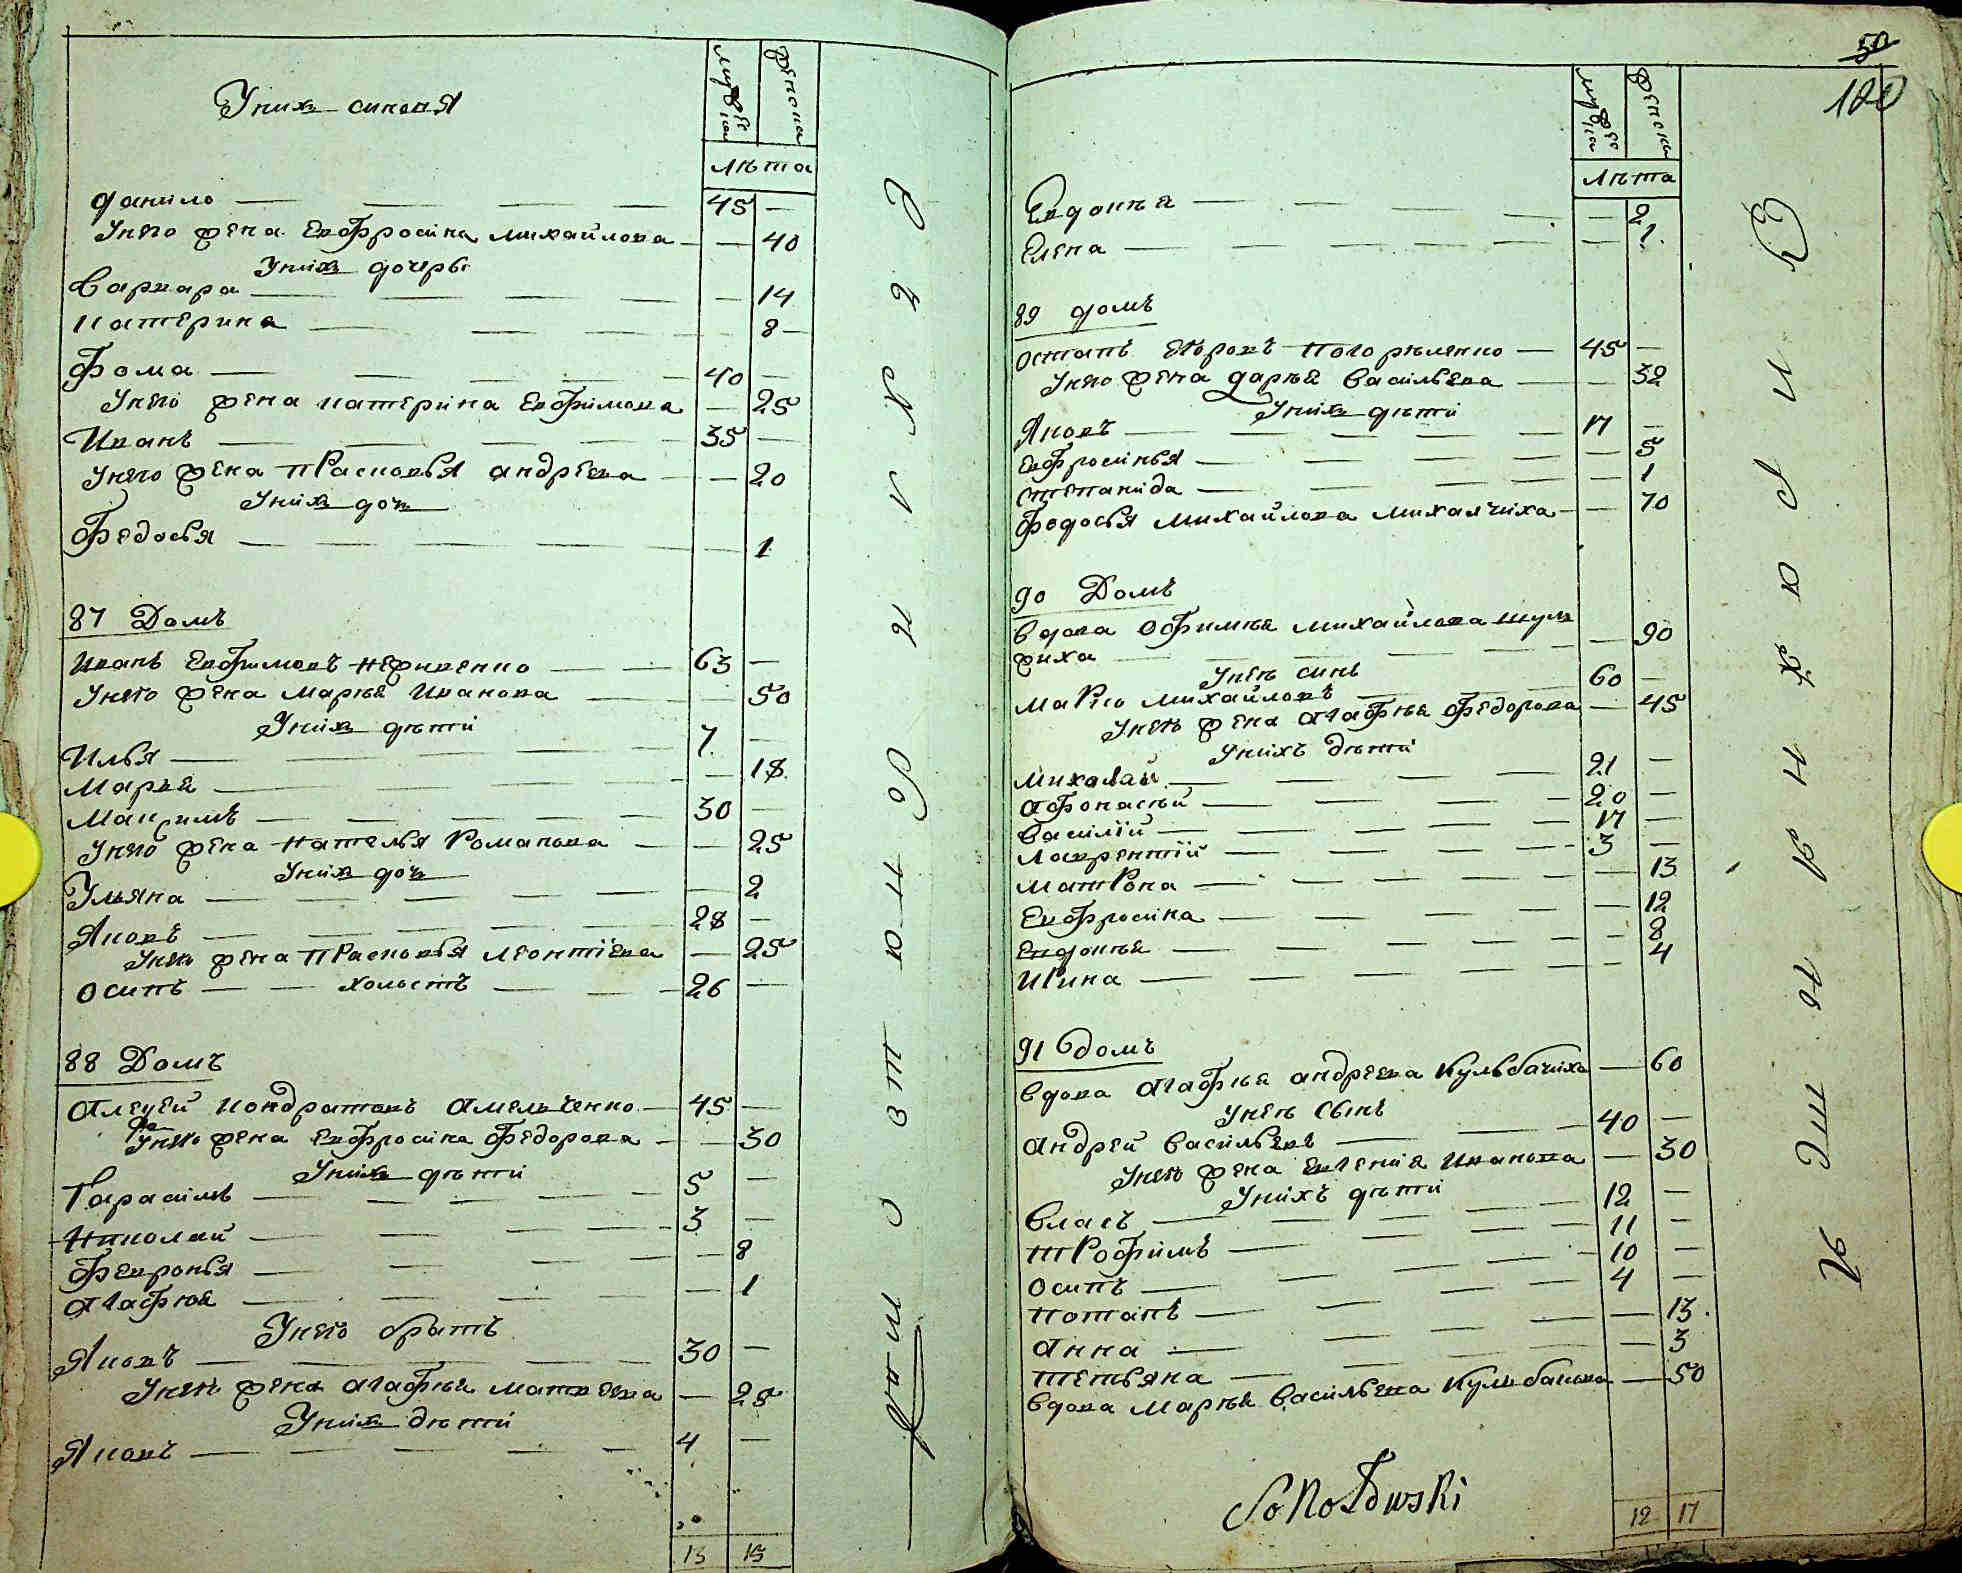 Унихъ синовя
мужеска
женска
лѣта
данило — 45 —
Унего жена Евфросина михайлова — 40
Унихъ дочеры
Варвара — 14
катерина — 8
Фома — 40 —
Унего жена катерина Евфимова — 25
Иванъ — 35 —
Унего жена Прасковья андреева — 20
Унихъ доч
Федосья — 1
87 Домъ
Иванъ Евфимовъ неживенко — 63 —
Унего жена марья Иванова — 50
Унихъ дѣти
Илья — 7 —
Марья — 18
Маѯимъ — 30 —
Унего жена Наталья Романова — 25
Унихъ доч
Ульяна — 2
Яковъ — 28 —
Унего жена Прасковья леонтіева — 25
осипъ — холостъ — 26 —
88 Домъ
алеѯей кондратовъ амельченко — 45 —
Унего жена Евфросина Федорова — 30
Унихъ дѣти
Гарасимъ — 5 —
Николай — 3 —
Февронья — 8
агафья — 1
Унего братъ
Яковъ — 30 —
Унего жена агафья матвеева — 25
Унихъ дѣти
Яковъ — 4 —
13 13
50
120
мужеска
женска
лѣта
Евдокия — 2
Елена — 1
89 домъ
остапъ Егоровъ Погорѣленко — 45 —
Унего жена дарья Васильева — 32
Унихъ дѣти
Яковъ — 17 —
Евфросинья — 5
степанида — 1
Федосья михайлова михалчиха — 70
90 Домъ
Вдова офимья михайлова шул
жиха — 90
Унея синъ
марко михайловъ — 60 —
Унего жена агафья Федорова — 45
Унихъ дѣти
михолай — 21 —
афонасій — 20 —
Василій — 17 —
лаврентій — 3 —
матрона — 13
Евфросина — 12
Евдокия — 8
Ирина — 4
91 домъ
вдова агафья андреева кульбачиха — 60
Унея сынъ
андрей васильевъ — 40 —
Унего жена Евгения Иванова — 30
Унихъ дѣти
власъ — 12 —
трофимъ — 11 —
осипъ — 10 —
потапъ — 4 —
анна — 13
тетьяна — 3
Вдова марья Васильева кульбакова — 50
Sokołowski
12 17